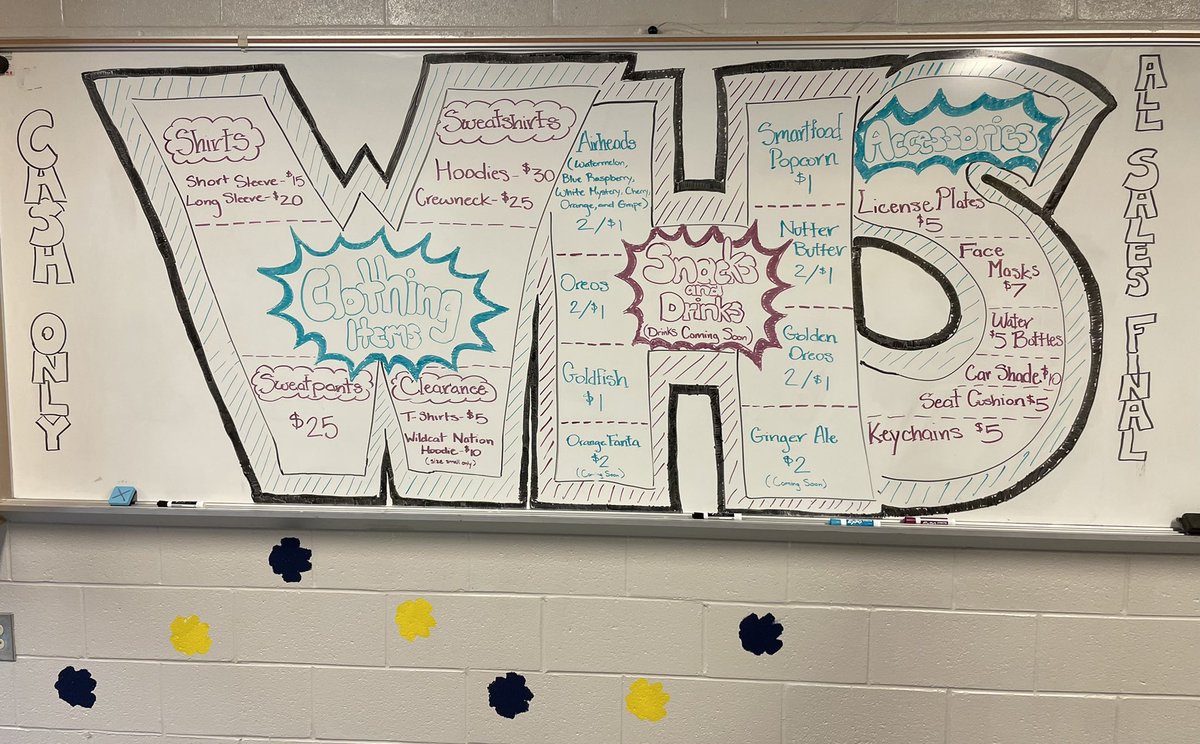 CASH ONLY
WHS
Shirts
Short Sleeve-$15
Long Sleeve-$20
Sweatshirts
Hoodies-$30
Crewneck-$25
Clothing
Items
Sweatpants
$25
Clearance
T-Shirts-$5
Wildcat Nation
Hoodie-$10
(size small only)
Airheads
(Watermelon,
Blue Raspberry,
White Mystery, Cherry,
Orange, and Grape)
2/$1
Oreos
2/$1
Goldfish
$1
Orange Fanta
$2
(Coming Soon)
Snacks
and
Drinks
(Drinks Coming Soon)
Smartfood
Popcorn
$1
Nutter
Butter
2/$1
Golden
Oreos
2/$1
Ginger Ale
$2
(Coming Soon)
Accessories
License Plates
$5
Face
Masks
$7
Water
$5 Bottles
Car Shade $10
Seat Cushion $5
Keychains $5
ALL SALES FINAL